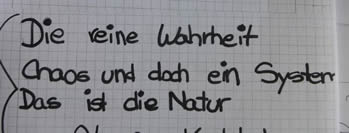 Die reine Wahrheit
Chaos und doch ein System
Das ist die Natur